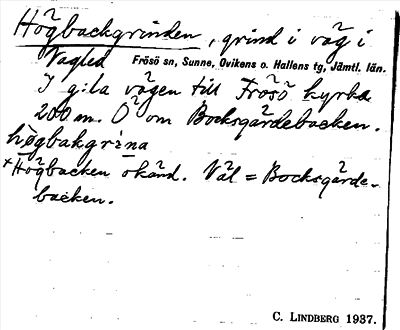 Högbackgrinden, grind i väg i
Vagled Frösö sn, Sunne, Ovikens o. Hallens tg, Jämtl. län.
I g:la vägen till Frösö kyrka
200 m. Ö om Bocksgärdebacken.
högbakgrìna
×Högbacken okänd. Väl = Bocksgärde-
backen.
C. LINDBERG 1937.